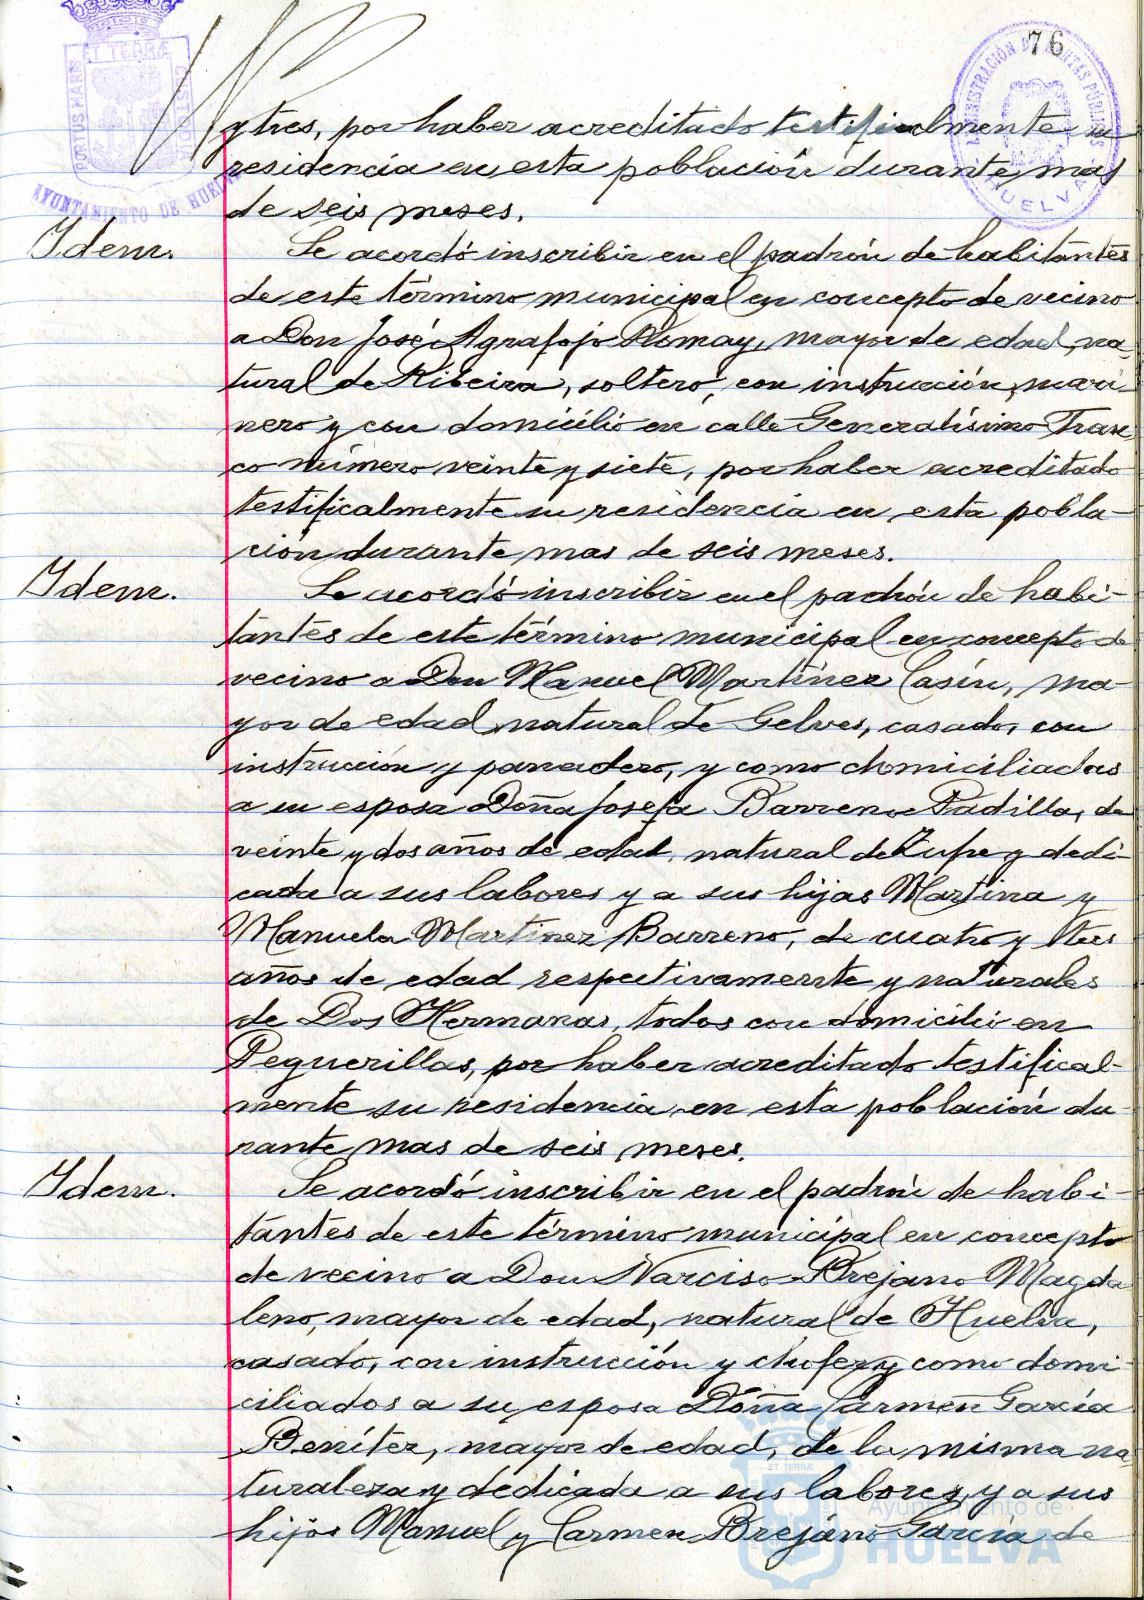 76
PORTUS MARIS ET TERRÆ CUSTODIA
AYUNTAMIENTO DE HUELVA
ADMINISTRACIÓN DE RENTAS PÚBLICAS
HUELVA
y tres, por haber acreditado testificalmente su
residencia en esta población durante mas
de seis meses.
Idem.
Se acordó inscribir en el padrón de habitantes
de este término municipal en concepto de vecino
a Don José Agrafojo Romay, mayor de edad, na-
tural de Ribeira, soltero, con instrucción, mari-
nero y con domicilio en calle Generalísimo Fran-
co número veinte y siete, por haber acreditado
testificalmente su residencia en esta pobla-
ción durante mas de seis meses.
Idem.
Se acordó inscribir en el padrón de habi-
tantes de este término municipal en concepto de
vecino a Don Manuel Martínez Casín, ma-
yor de edad, natural de Gelves, casado, con
instrucción y panadero, y como domiciliadas
a su esposa Doña Josefa Barreno Padilla, de
veinte y dos años de edad, natural de y dedi-
cada a sus labores y a sus hijas Martina y
Manuela Martinez Barreno, de cuatro y tres
años de edad respectivamente y naturales
de Dos Hermanas, todos con domicilio en
Peguerillas, por haber acreditado testifical-
mente su residencia en esta población du-
rante mas de seis meses.
Idem.
Se acordó inscribir en el padrón de habi-
tantes de este término municipal en concepto
de vecino a Don Narciso Brejano Magda-
leno, mayor de edad, natural de Huelva,
casado, con instrucción y chofer y como domi-
ciliados a su esposa Doña Carmen García
Benítez, mayor de edad, de la misma na-
turaleza y dedicada a sus labores, y a sus
hijos Manuel y Carmen Brejano García, de
Ayuntamiento de
HUELVA